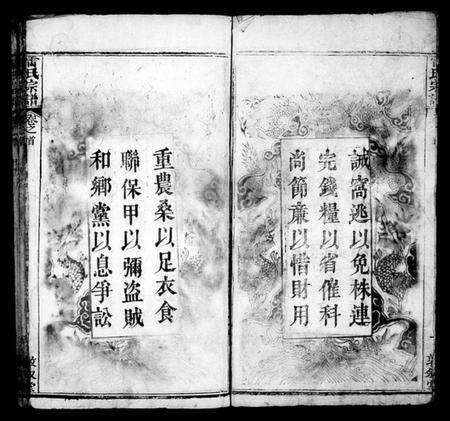 誠窩逃以免株連
完錢糧以省催科
尚節儉以惜財用
重農桑以足衣食
聯保甲以彌盜賊
和鄉黨以息爭訟
氏宗譜
卷之首